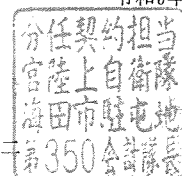 分任契約担当
官陸上自衛隊
海田市駐屯地
第350会計隊長